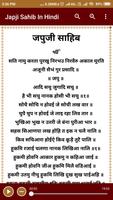 Japji Sahib In Hindi
जपुजी साहिब
ੴ
सति नामु करता पुरखु निरभउ निरवैरु अकाल मूरति
अजूनी सैभं गुर प्रसादि ॥
॥ जपु ॥
आदि सचु जुगादि सचु ॥
है भी सचु नानक होसी भी सचु ॥१॥
सोचै सोचि न होवई जे सोची लख वार ॥
चुपै चुप न होवई जे लाइ रहा लिव तार ॥
भुखिआ भुख न उतरी जे बंना पुरीआ भार ॥
सहस सिआणपा लख होहि त इक न चलै नालि ॥
किव सचिआरा होईऐ किव कूड़ै तुटै पालि ॥
हुकमि रजाई चलणा नानक लिखिआ नालि ॥१॥
हुकमी होवनि आकार हुकमु न कहिआ जाई ॥
हुकमी होवनि जीअ हुकमि मिलै वडिआई ॥